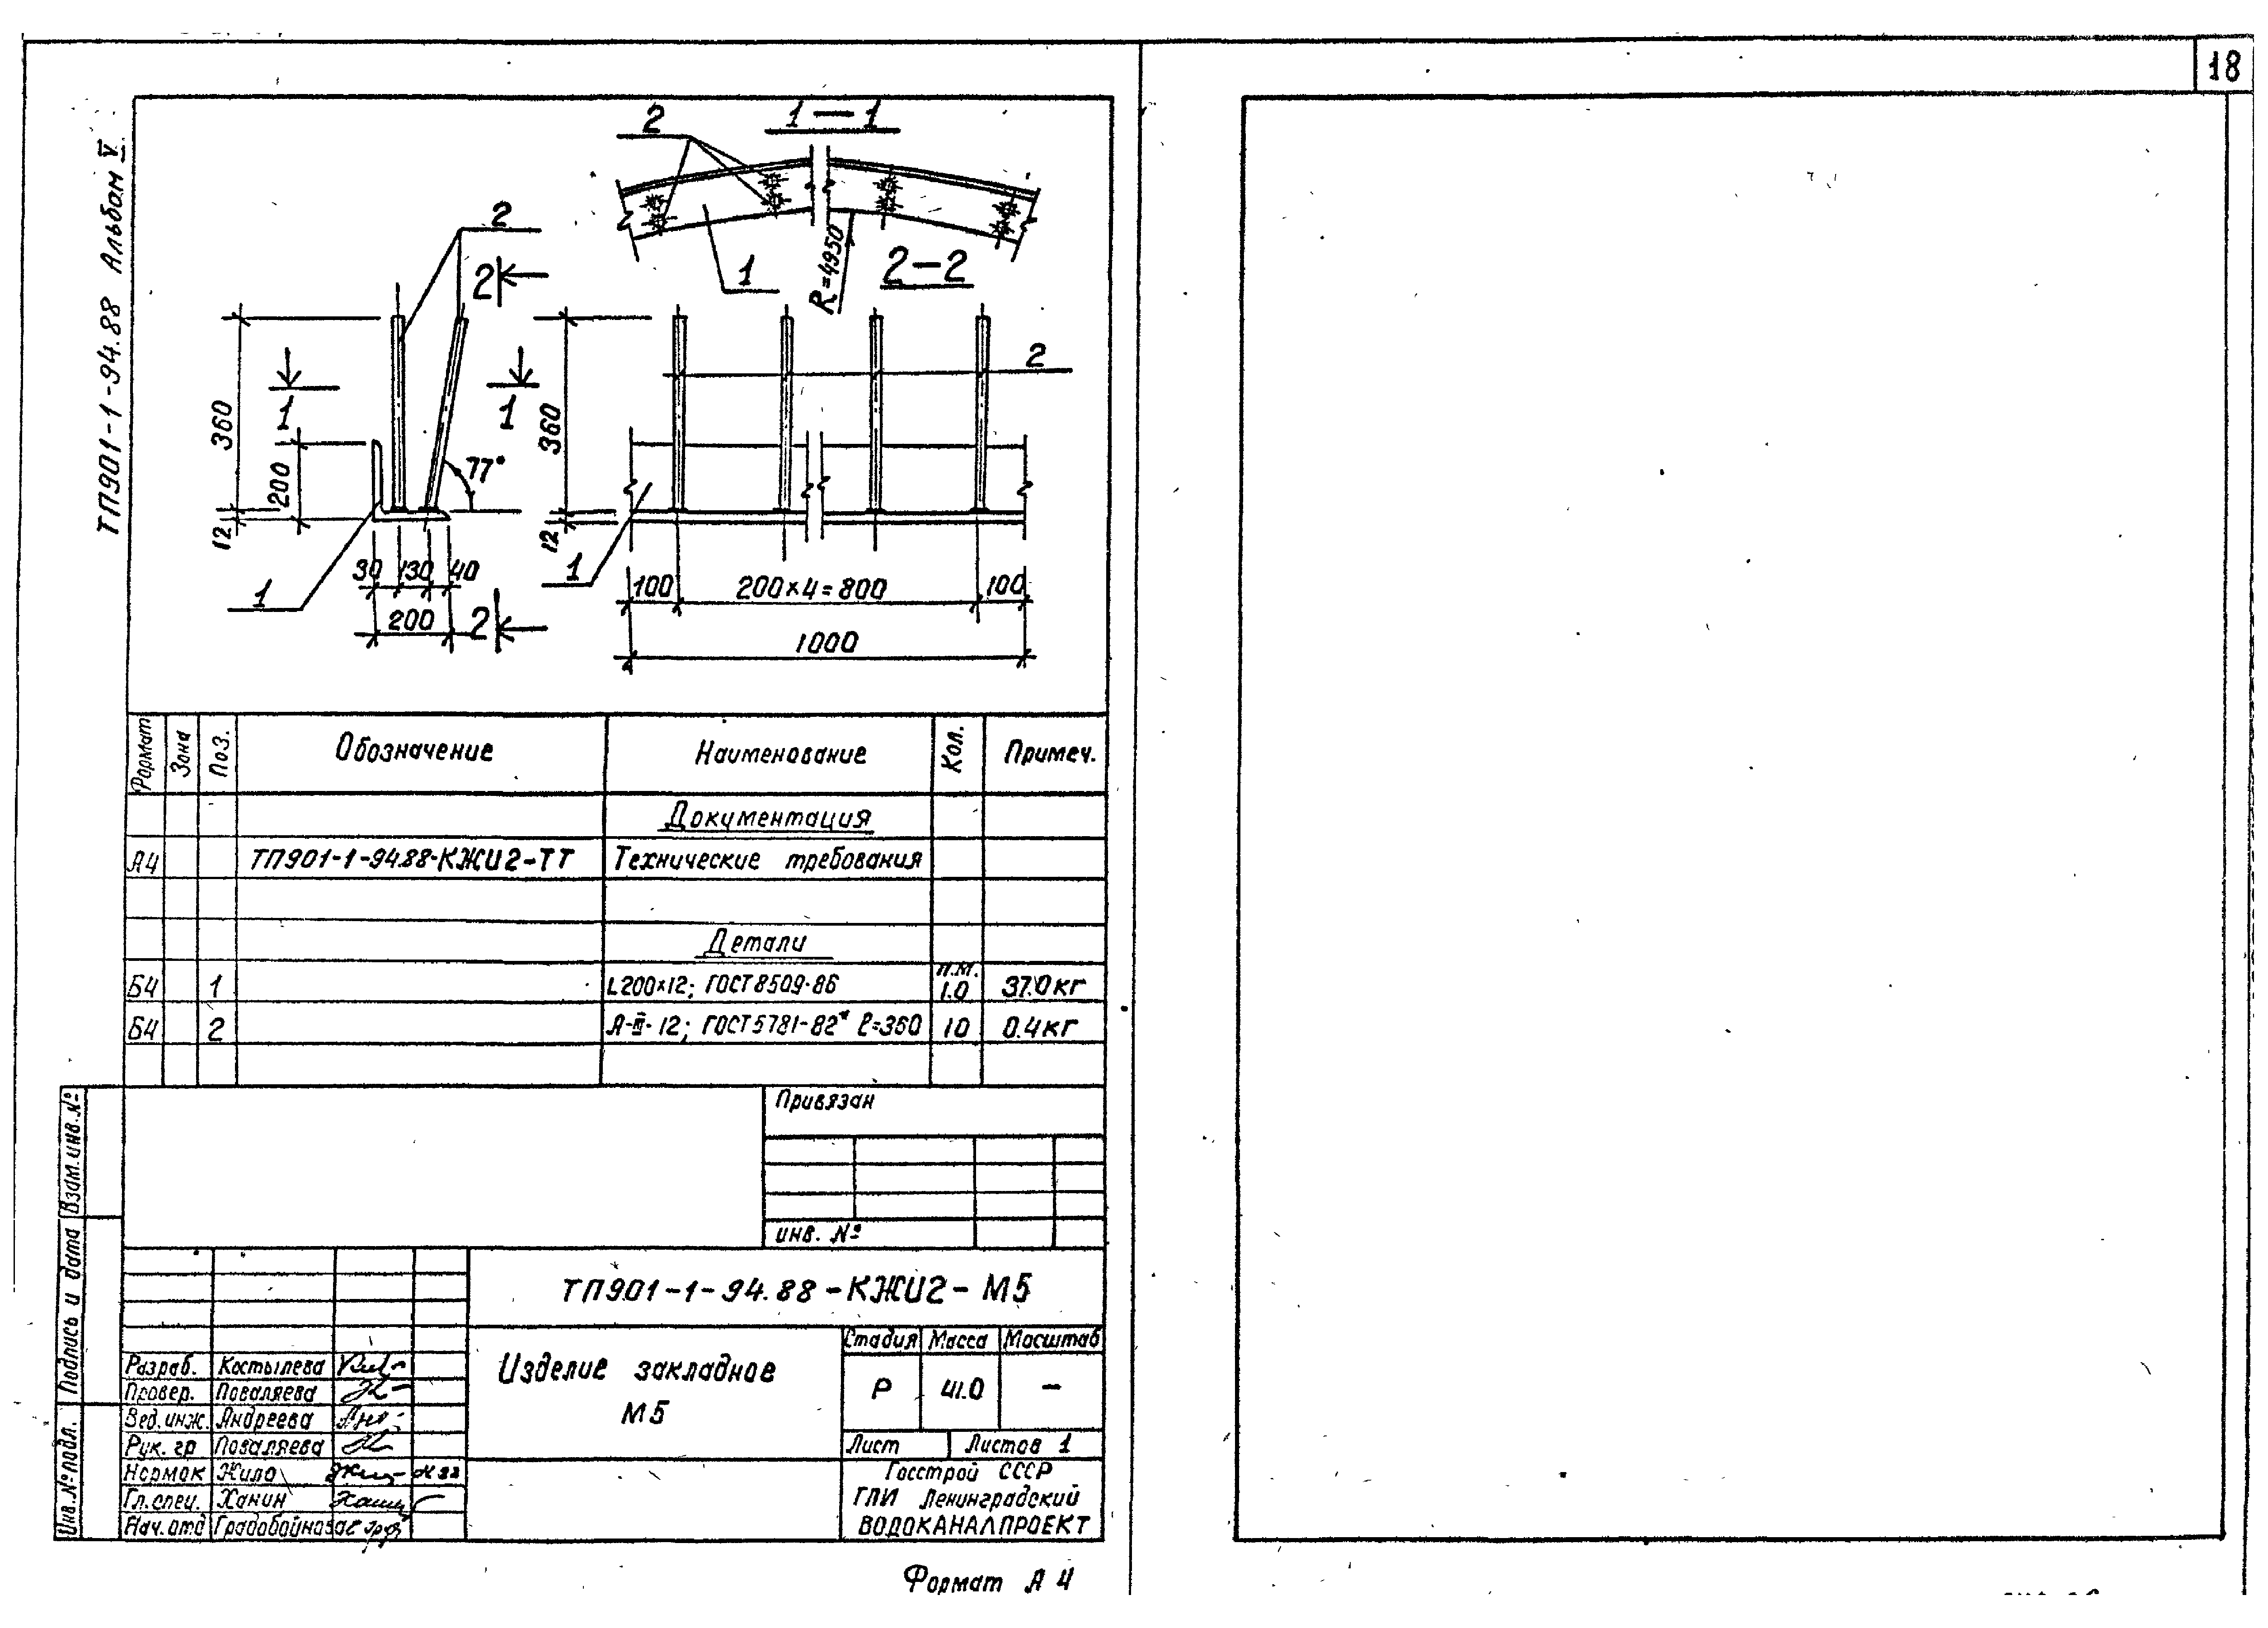 18
ТП901-1-94.88 Альбом V
1—1
2
1
R=4950
2
2
1
1
360
200
12
77°
30 130 40
200
1
2
2-2
360
12
2
1
100 200×4=800 100
1000
Формат Зона Поз. Обозначение Наименование Кол. Примеч.
Документация
А4 ТП901-1-94.88-КЖИ2-ТТ Технические требования
Детали
Б4 1 L200×12; ГОСТ 8509-86 п.м. 1.0 37.0 кг
Б4 2 А-III-12; ГОСТ 5781-82* ℓ=360 10 0.4 кг
Привязан
инв. №
Взам. инв. №
Подпись и дата
Инв. № подл.
ТП901-1-94.88-КЖИ2-М5
Изделие закладное
М5
Стадия Масса Масштаб
Р 41.0 —
Лист Листов 1
Госстрой СССР
ГПИ Ленинградский
ВОДОКАНАЛПРОЕКТ
Разраб. Костылева
Провер. Поваляева
Вед. инж. Андреева
Рук. гр Поваляева
Нормок Жило
Гл. спец. Ханин
Нач. отд Градобойнова
Формат А4